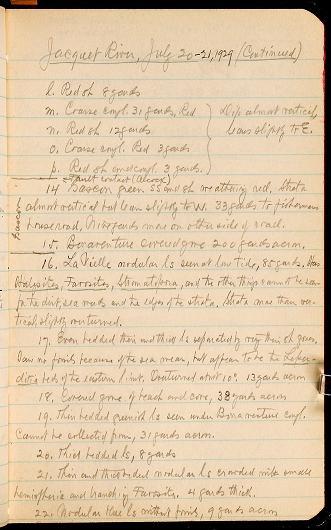 Jacquet River, July 20-21, 1929 (Continued)
l. Red sh 8 yards
m. Coarse congl. 31 yards, Red
n. Red sh 12 yards
o. Coarse congl. Red 3 yards
p. Red sh and congl. 3 yards.
Dip almost vertical,
leans slightly to E.
Fault contact (Alcock)
14 Bascon green SS and sh weathering red, strata
almost vertical but lean slightly to W. 33 yards to fishermans
house road, Nine yards more on other side of road.
Bascon
15. Bonaventure covered zone 200 yards across.
16. La Vieille nodular ls seen at low tide, 85 yards. Has
Halysites, Favosites, Stromatopora, and the other things cannot be seen
for the dirt, sea weeds and the edges of the strata. Strata more than ver-
tical, slightly overturned.
17. Even bedded thin and thick ls separated by very thin sh zones.
Saw no fossils because of the sea wear, but appear to be the Leper-
ditia beds of the eastern limb. Overturned about 10°. 13 yards across
18. Covered zone of beach and cove, 38 yards across
19. Thin bedded greenish ls seen under Bonaventure congl.
Cannot be collected from, 31 yards across.
20. Thick bedded ls, 8 yards
21. Thin and thick bedded nodular ls crowded with small
hemispheric and branching Favosites. 4 yards thick.
22. Nodular blue ls without fossils, 9 yards across